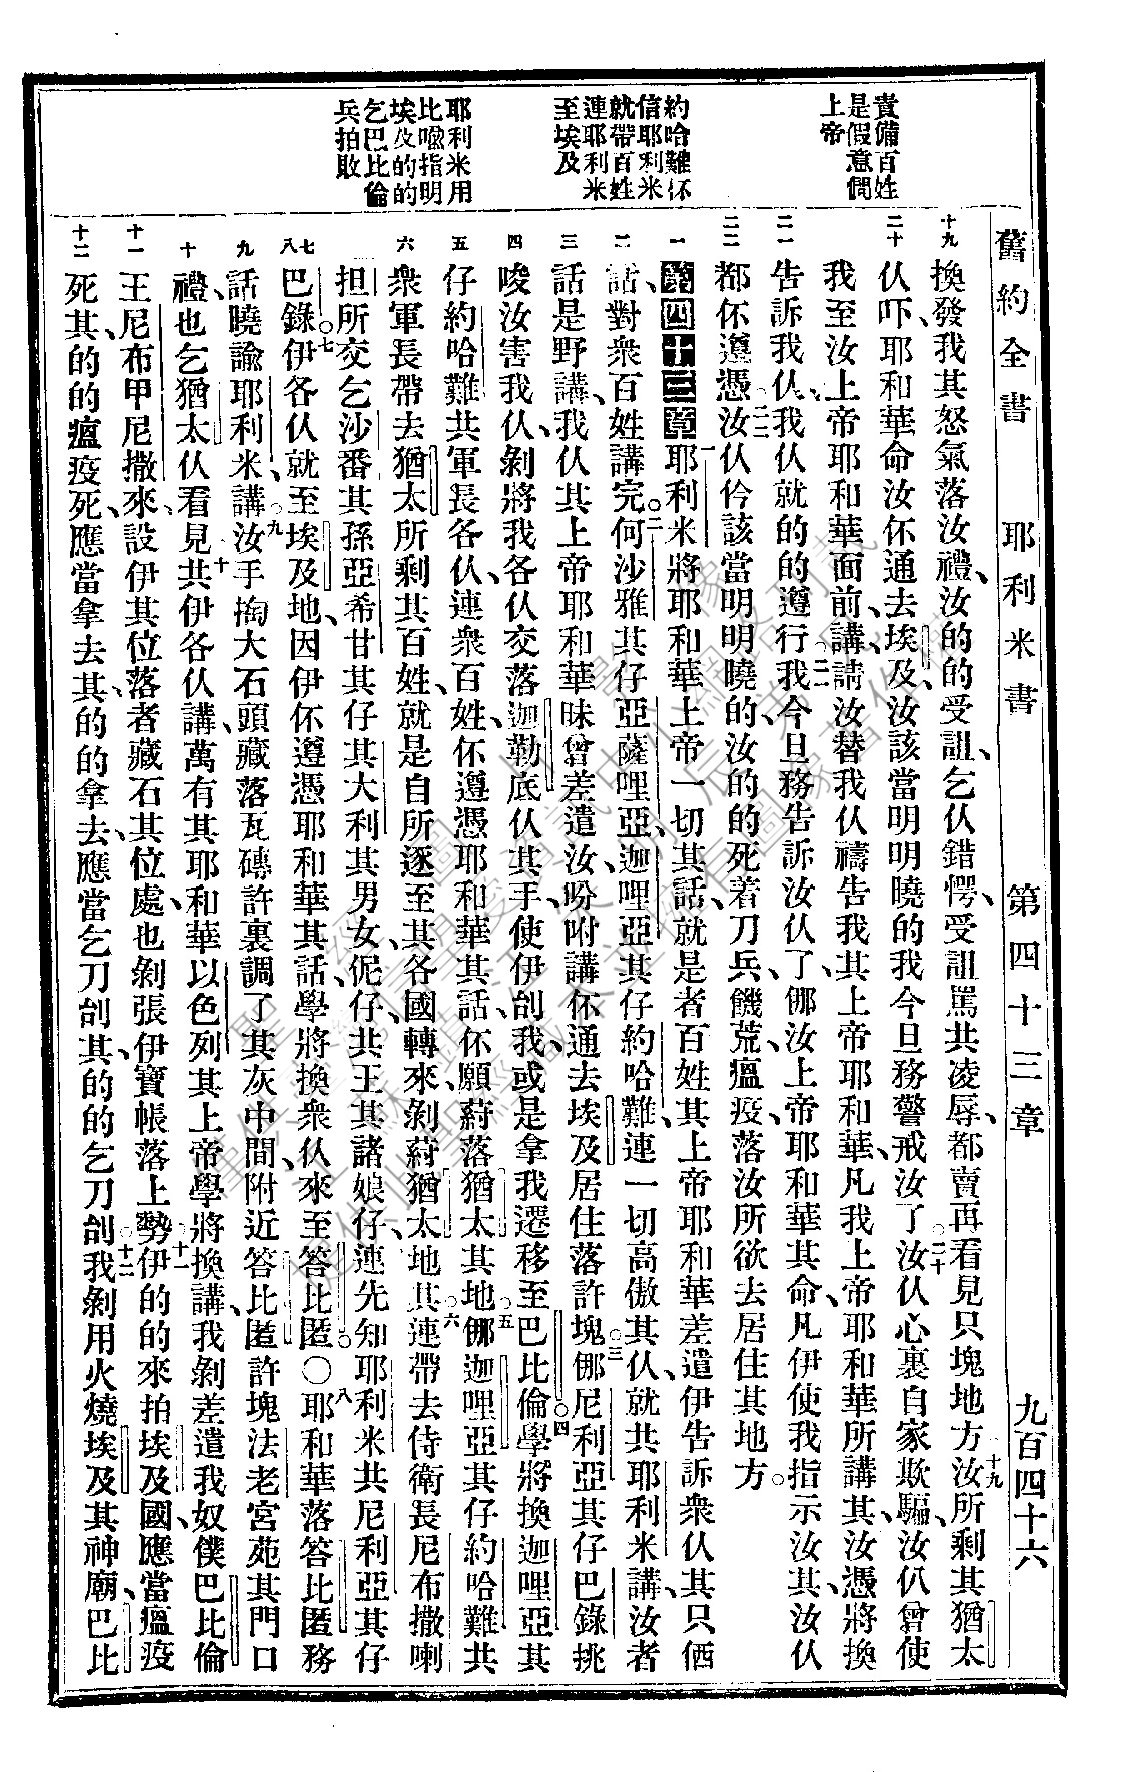 舊約全書 耶利米書 第四十三章 九百四十六
責備百姓
是假意問
上帝
約哈難伓
信耶利米
就帶百姓
連耶利米
至埃及
耶利米用
比喻指明
埃及的的
乞巴比倫
兵拍敗
換發我其怒氣落汝禮、汝的的受詛、乞仈錯愕、受詛罵共凌辱、都賣再看見只塊地方、汝所剩其猶太
仈吓、耶和華命汝伓通去埃及、汝該當明明曉的我今旦務警戒汝了。汝仈心裏自家欺騙、汝仈曾使
我至汝上帝耶和華面前、講、請汝替我仈禱告我其上帝耶和華、凡我上帝耶和華所講其、汝憑將換
告訴我仈、我仈就的的遵行。我今旦務告訴汝仈了、㑚汝上帝耶和華其命、凡伊使我指示汝其、汝仈
都伓遵憑。汝仈伶該當明明曉的、汝的的死着刀兵、饑荒、瘟疫、落汝所欲去居住其地方。
第四十三章 耶利米將耶和華上帝一切其話、就是者百姓其上帝耶和華差遣伊告訴衆仈其只倆
話、對衆百姓講完。何沙雅其仔亞薩哩亞、迦哩亞其仔約哈難、連一切高傲其仈、就共耶利米講、汝者
話是野講、我仈其上帝耶和華昧曾差遣汝、吩咐講、伓通去埃及居住落許塊、㑚尼利亞其仔巴錄挑
唆汝害我仈、剝將我各仈交落迦勒底仈其手、使伊刣我、或是拿我遷移至巴比倫。學將換迦哩亞其
仔約哈難共軍長各仈、連衆百姓、伓遵憑耶和華其話、伓願蒔落猶太其地。㑚迦哩亞其仔約哈難共
衆軍長帶去猶太所剩其百姓、就是自所逐至其各國轉來、剝蒔猶太地其、連帶去侍衛長尼布撒喇
担所交乞沙番其孫亞希甘其仔其大利其男女、伲仔、共王其諸娘仔、連先知耶利米共尼利亞其仔
巴錄。伊各仈就至埃及地、因伊伓遵憑耶和華其話、學將換衆仈來至答比匿。○耶和華落答比匿務
話曉諭耶利米、講、汝手掏大石頭藏落瓦磚許裏調了其灰中間、附近答比匿許塊法老宮苑其門口
禮、也乞猶太仈看見、共伊各仈講、萬有其耶和華以色列其上帝學將換講、我剝差遣我奴僕巴比倫
王尼布甲尼撒來、設伊其位落者藏石其位處、也剝張伊寶帳落上勢。伊的的來拍埃及國、應當瘟疫
死其、的的瘟疫死、應當拿去其、的的拿去、應當乞刀刣其、的的乞刀刣。我剝用火燒埃及其神廟、巴比